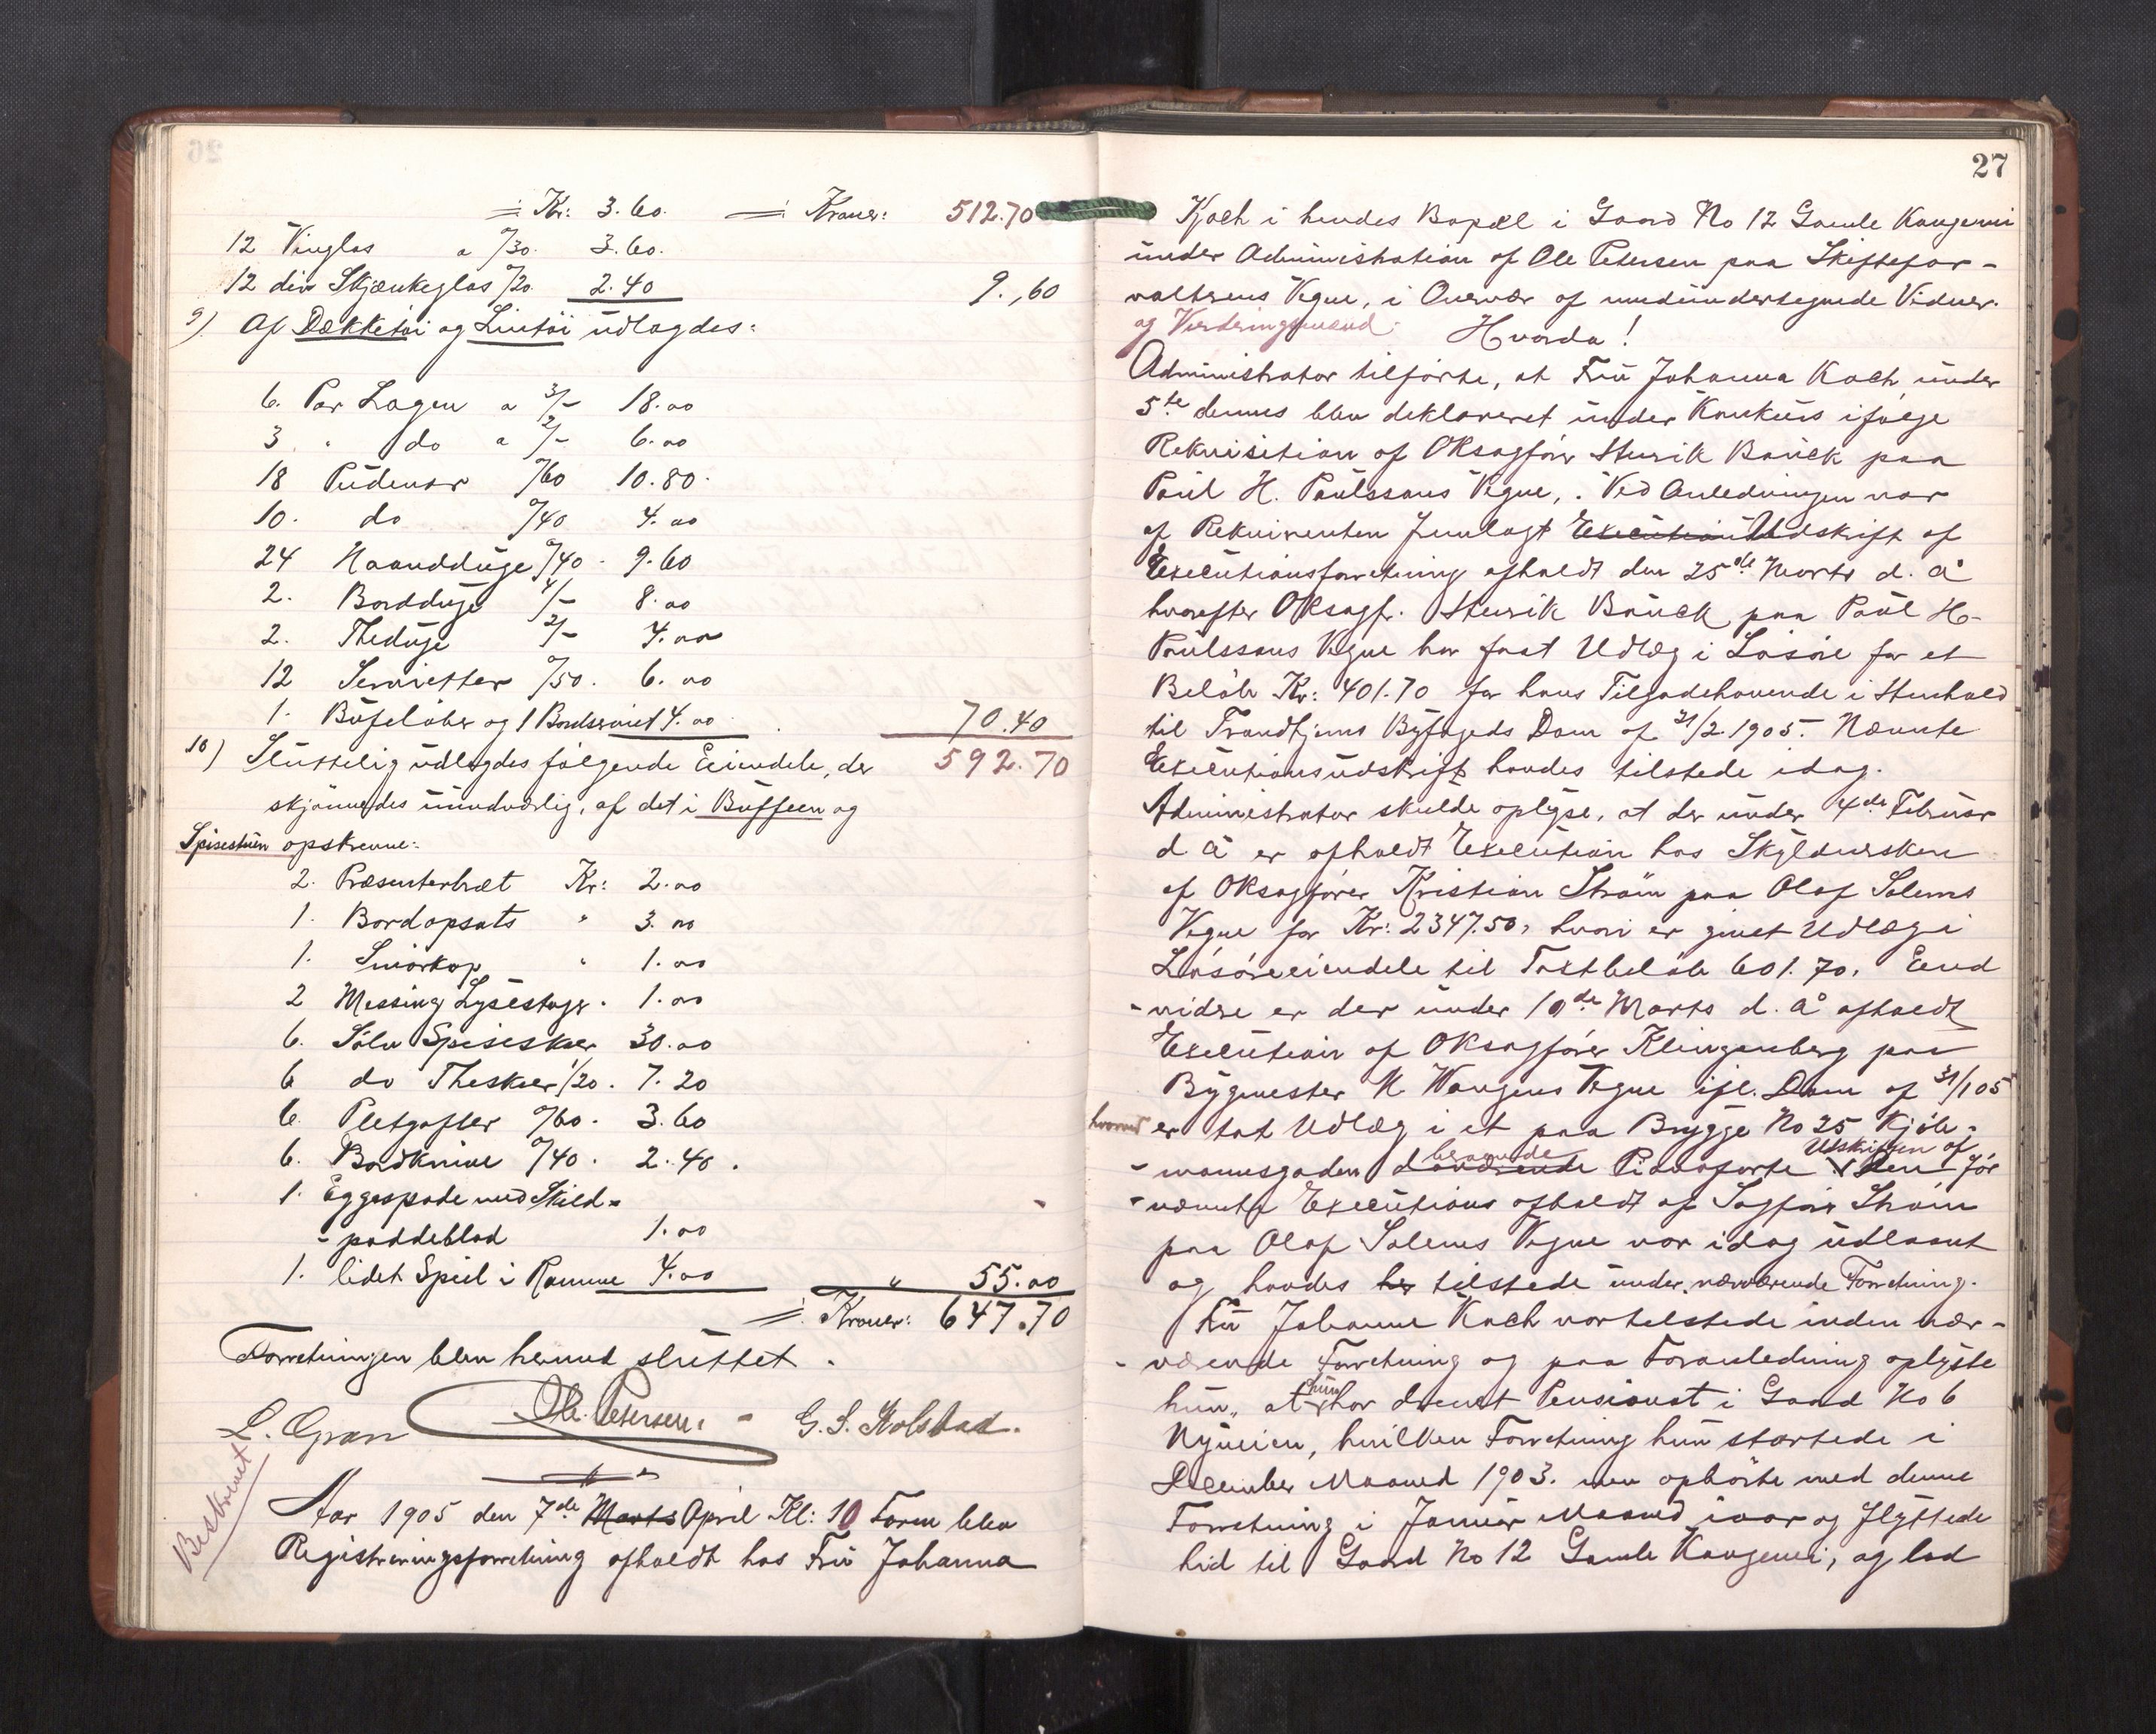 = Kr: 3.60. = Kroner: 512.70
12 Vinglas a 0/30. 3.60.
12 div Skjænkeglas 0/20. 2.40 9.,60
9) Af Dækketöi og Lintöi udlagdes:
6. Par Lagen a 3/- 18.00
3 " do a 2/- 6.00
18 Pudevar 0/60 10.80.
10. do 0/40 4.00
24 Haandduge 0/40. 9.60
2. Bordduge 4/- 8.00
2. Theduge 2/- 4.00
12 Servietter 0/50. 6.00
1. Bufelöber og 1 Bordserviet 4.00 70.40
10) Sluttelig udlagdes fölgende Eiendele, der 592.70
skjönnedes uundværlig, af det i Buffeen og
Spisestuen opskrevne:
2. Præsenterbræt Kr: 2.00
1. Bordopsats " 3.00
1. Smörkop " 1.00
2 Messing Lysestager. 1.00
6. Sölv Spiseskeer 30.00
6 do Theskeer 1/20. 7.20
6. Pletgafler 0/60. 3.60
6. Bordknive 0/40. 2.40.
1. Eggespade med Skild-
-paddeblad 1.00
1. lidet Speil i Ramme 4.00 " 55.00
= Kroner: 647.70
Forretningen blev hermed sluttet.
L. Gran Ole Petersen - G. S. Stolstad.
Beskrevet
Aar 1905 den 7de Marts April Kl: 10 Form blev
Registreringsforretning afholdt hos Fru Johanna
27
Koch i hendes Bopæl i Gaard No 12 Gamle Kongevei
under Administration af Ole Petersen paa Skiftefor-
valterens Vegne, i Overvær af medundertegnede Vidner.
og Vurderingsmænd. Hvorda!
Administrator tilförte, at Fru Johanna Koch under
5te dennes blev deklareret under Konkurs ifölge
Rekvisition af OKsagförer Henrik Bauck paa
Paul H. Paulssons Vegne,. Ved Anledningen var
af Rekvirenten fremlagt Execution Udskrift af
Executionsforretning afholdt den 25de Marts d. A
hvorefter OKsagf. Henrik Bauck paa Paul H.
Paulssons Vegne har faat Udlæg i Lösöre for et
Belöb Kr: 401.70 for hans Tilgodehavende i Henhold
til Trondhjems Byfogeds Dom af 21/2.1905. Nævnte
Executionsudskrift havdes tilstede idag.
Administrator skulde oplyse, at der under 4de Februar
d A er afholdt Execution hos Skyldnersken
af OKsagförer Kristian Ström paa Olaf Solems
Vegne for Kr: 2347.50, hvori er givet Udlæg i
Lösöreeiendele til Taxtbelöb 601.70. End
-videre er der under 10de Marts d. A afholdt
Execution af OKsagförer Klingenberg paa
Bygmester N Wangens Vegne ifl. Dom af 31/1 05
hvorved er tat Udlæg i et paa Brygge No 25 Kjöb-
-mannsgaden daværende beroende Pianoforte Udskriften af Den för
-nævnte Executions afholdt af Sagförer Ström
paa Olaf Solems Vegne var idag udlaant
og havdes her tilstede under nærværende Forretning.
Fru Johanne Koch var tilstede inden nær-
-værende Forretning og paa Foranledning oplyste
hun, at hun har drevet Pensionat i Gaard No 6
Nyveien, hvilken Forretning hun startede i
December Maaned 1903. men ophörte med denne
Forretning i Januar Maaned iaar og flyttede
hid til Gaard No 12 Gamle Kongevei, og lod